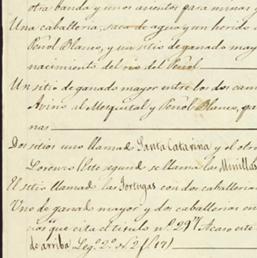 otra banda y unos asientos para minas y
Una caballeria, saca de agua y un herido
Peñol Blanco, y un sitio de ganado may
nacimiento del rio del Peñol
Un sitio de ganado mayor entre los dos cam
Avino al Mezquital y Peñol Blanco, pa
nas
Dos sitios uno llamad Santa Catarina y el otro
Lorenzo (Este segund se llama las Minillas
El sitio llamad las Tortugas con dos caballerias
Uno de ganad mayor y dos caballerias en
rios que cita el titulo nº 297. Acaso este
de arriba Leg.º 2.º N 2 f 17)